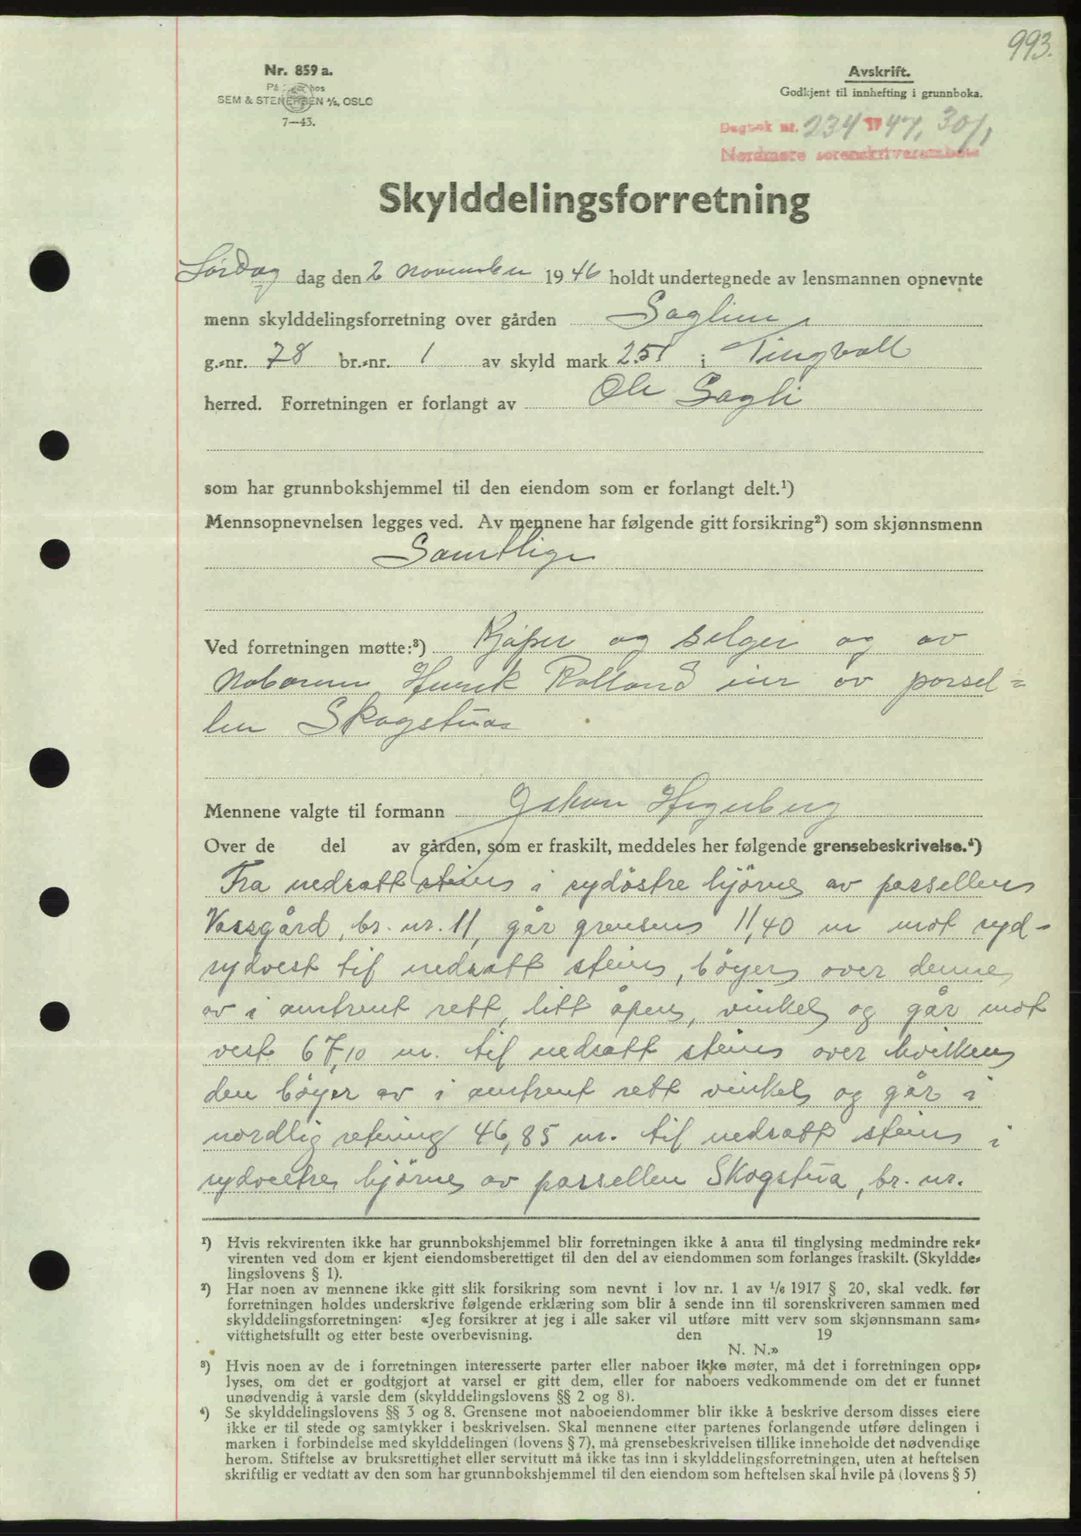 993.
Nr. 859 a.
På hos
SEM & STENERSEN A/S, OSLO
7—43.
Avskrift.
Godkjent til innhefting i grunnboka.
Dagbok nr. 234 1947, 30/1
Nordmøre sorenskriverembete
Skylddelingsforretning
Lördag dag den 2 november 1946 holdt undertegnede av lensmannen opnevnte
menn skylddelingsforretning over gården Saglien
g.-nr. 78 br.-nr. 1 av skyld mark 2.51 i Tingvoll
herred. Forretningen er forlangt av Ole Sagli
som har grunnbokshjemmel til den eiendom som er forlangt delt.¹)
Mennsopnevnelsen legges ved. Av mennene har følgende gitt forsikring²) som skjønnsmenn
Samtlige
Ved forretningen møtte:³) Kjöper og selger og av
naboene Henrik Rolland eier av parsel=
len Skogstua
Mennene valgte til formann Håkon
Over de del av gården, som er fraskilt, meddeles her følgende grensebeskrivelse.⁴)
Fra nedsatt stein i sydöstre hjörne av parsellen
Vassgård, br. nr. 11, går grensen 11,40 m mot syd-
sydvest til nedsatt stein, böyer over denne
av i omtrent rett, litt åpen, vinkel og går mot
vest 67,10 m. til nedsatt stein over hvilken
den böyer av i omtrent rett vinkel og går i
nordlig retning 46,85 m. til nedsatt stein i
sydvestre hjörne av parsellen Skogstua, br. nr.
¹) Hvis rekvirenten ikke har grunnbokshjemmel blir forretningen ikke å anta til tinglysing medmindre rek-
virenten ved dom er kjent eiendomsberettiget til den del av eiendommen som forlanges fraskilt. (Skyldde-
lingslovens § 1).
²) Har noen av mennene ikke gitt slik forsikring som nevnt i lov nr. 1 av 1/6 1917 § 20, skal vedk. før
forretningen holdes underskrive følgende erklæring som blir å sende inn til sorenskriveren sammen med
skylddelingsforretningen: «Jeg forsikrer at jeg i alle saker vil utføre mitt verv som skjønnsmann sam-
vittighetsfullt og etter beste overbevisning. den 19
N. N.»
³) Hvis noen av de i forretningen interesserte parter eller naboer ikke møter, må det i forretningen opp-
lyses, om det er godtgjort at varsel er gitt dem, eller for naboers vedkommende om det er funnet
unødvendig å varsle dem (skylddelingslovens §§ 2 og 8).
⁴) Se skylddelingslovens §§ 3 og 8. Grensene mot naboeiendommer blir ikke å beskrive dersom disses eiere
ikke er til stede og samtykker i beskrivelsen. Skal mennene etter partenes forlangende utføre delingen i
marken i forbindelse med skylddelingen (lovens § 7), må grensebeskrivelsen tillike inneholde det nødvendige
herom. Stiftelse av bruksrettighet eller servitutt må ikke tas inn i skylddelingsforretningen, uten at heftelsen
skriftlig er vedtatt av den som har grunnbokshjemmel til den eiendom som heftelsen skal hvile på (lovens § 5)